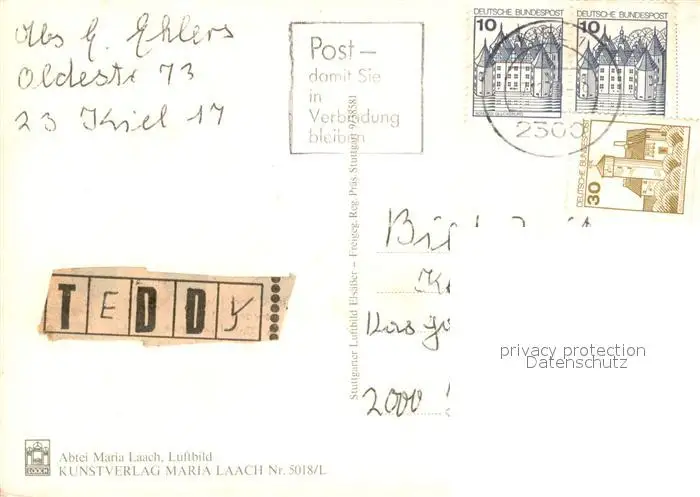 Abs G. Ehlers
Oldestr 73
23 Kiel 17
Post –
damit Sie
in
Verbindung
bleiben
10
DEUTSCHE BUNDESPOST
10
DEUTSCHE BUNDESPOST
SCHLOSS GLÜCKSBURG
2300
DEUTSCHE BUNDESPOST
30
Stuttgarter Luftbild Elsäßer – Freigeg. Reg. Präs. Stuttgart 9/38581
TEDDY
2000
privacy protection
Datenschutz
LAACH
Abtei Maria Laach, Luftbild
KUNSTVERLAG MARIA LAACH Nr. 5018/L